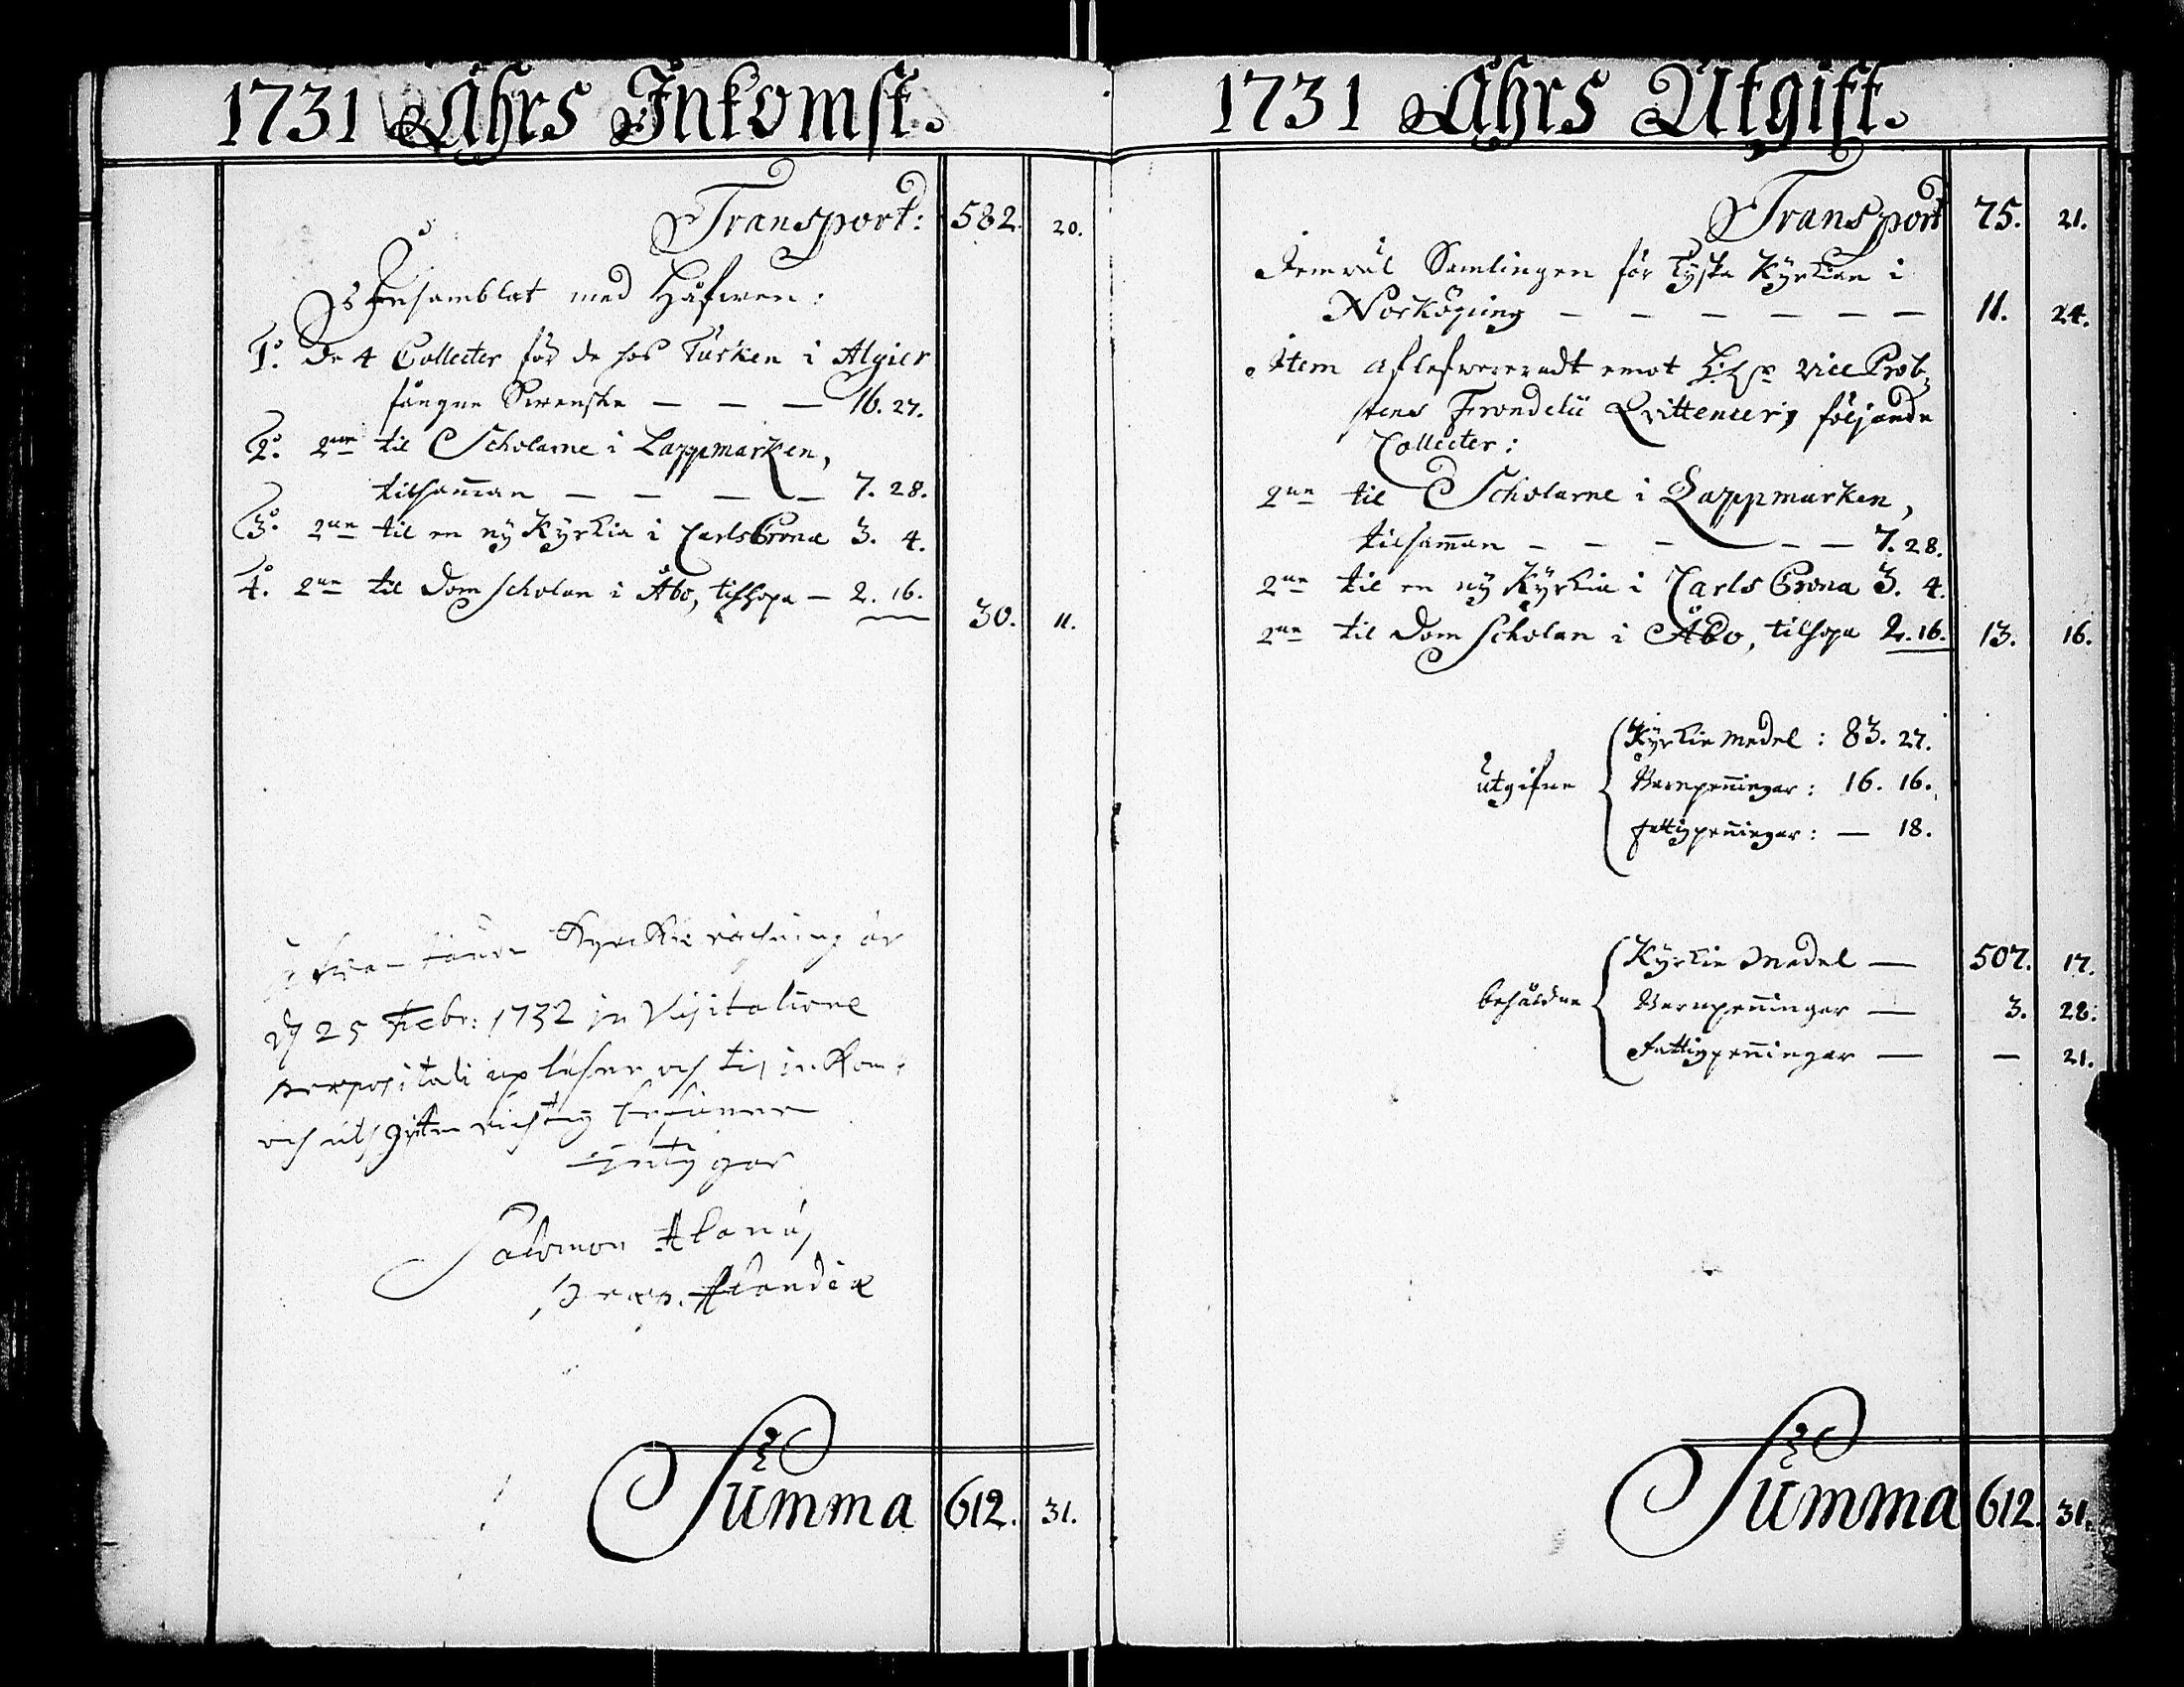 1731 Åhrs Inkomst.
Transport: 582. 20.
Församblat med Håfwen:
1:o De 4 Collecter för de hos Turken i Algier
fångne Swenske — — — 16. 27.
2:o 2ne til Scholarne i Lappmarken,
tilsam̄an — — — — 7. 28.
3:o 2ne til en ny Kyrkia i CarlsCrona 3. 4.
4:o 2ne til Dom Scholan i Åbo, tilhopa — 2. 16. 30. 11.
Kyrckio räckning är
d 25 Febr: 1732 in Visitatione
præpositali upläsen och til inkom:
och utgiften richtig befunnen
intygar
Salomon Alanus
Præp. Alandiæ
Summa 612. 31.
1731 Åhrs Utgift.
Transport 75. 21.
Jemwäl Samlingen för Tyska Kyrkian i
Norköping — — — — — — 11. 24.
Item aflefwereradt emot vice Prob-
stens Frondelii Qvittencer, följande
Collecter:
2ne til Scholarne i Lappmarken,
tilsam̄an — — — — — 7. 28.
2ne til en ny Kyrkia i Carls Crona 3. 4.
2ne til Dom Scholan i Åbo, tilhopa 2. 16. 13. 16.
Kyrkie medel: 83. 27.
utgifne Wernpen̄ingar: 16. 16.
Fattigpen̄ingar: — 18.
Kyrkie Medel — 507. 17.
behåldne Wernpen̄ingar — 3. 28.
Fattigpen̄ingar — — 21.
Summa 612. 31.